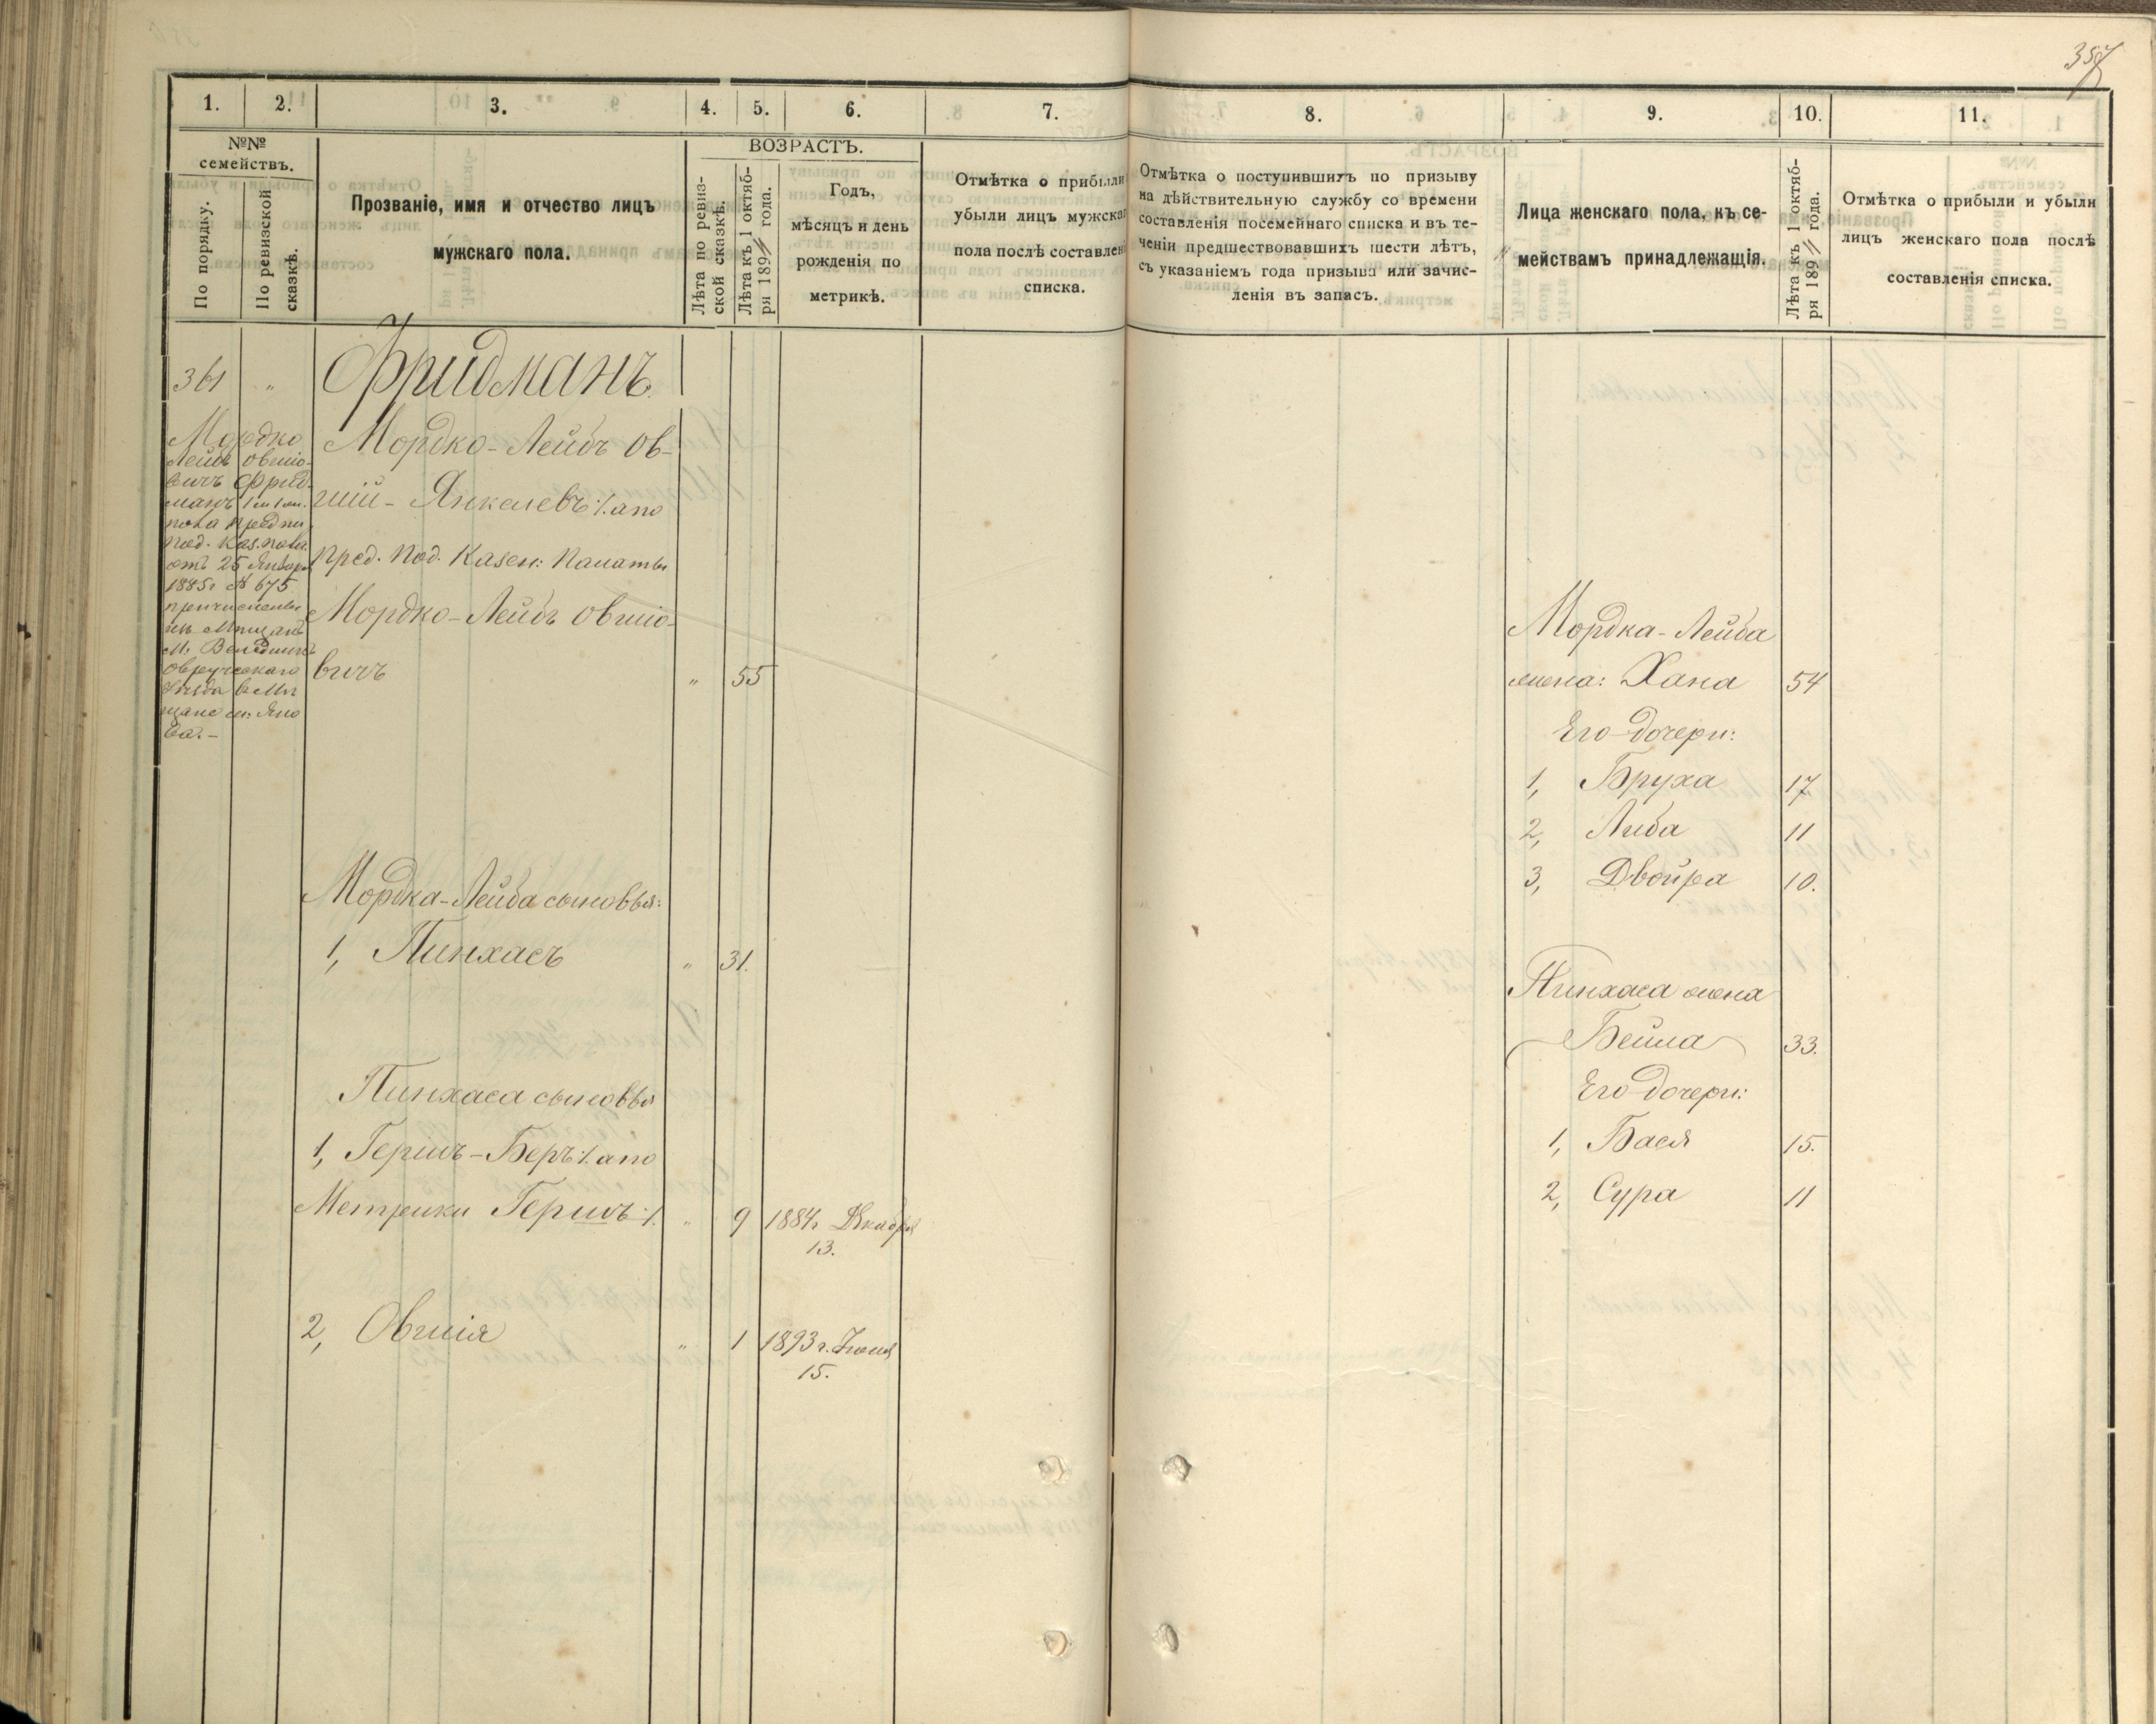 357
1. 2. 3. 4. 5. 6. 7. 8. 9. 10. 11.
№№
семействъ.
По порядку.
По ревизской
сказкѣ.
Прозваніе, имя и отчество лицъ
мужскаго пола.
ВОЗРАСТЪ.
Лѣта по ревиз-
ской сказкѣ.
Лѣта къ 1 октяб-
ря 189 года.
Годъ,
мѣсяцъ и день
рожденія по
метрикѣ.
Отмѣтка о прибыли
убыли лицъ мужска
пола послѣ составлен
списка.
Отмѣтка о поступившихъ по призыву
на дѣйствительную службу со времени
составленія посемейнаго списка и въ те-
ченіи предшествовавшихъ шести лѣтъ,
съ указаніемъ года призыва или зачис-
ленія въ запасъ.
Лица женскаго пола, къ се-
мействамъ принадлежащія.
Лѣта къ 1 октяб-
ря 189 года.
Отмѣтка о прибыли и убыли
лицъ женскаго пола послѣ
составленія списка.
361 "
Мордко
Лейбъ Овшіо-
вичъ Фрид-
манъ
пола предпи.
под. Каз. пала.
отъ 25 Января
1885г № 675
причисленъ
изъ Мѣщанъ
М. Веледникъ
Овручскаго
Уѣзда в Мѣ
щане
ва.-
Фридманъ.
Мордко-Лейбъ Ов-
шій-Янкелевъ ∕. а по
пред. Под. Казен: Палаты
Мордко-Лейбъ Овшіо-
вичъ " 55
Мордка-Лейба сыновья:
1, Пинхасъ " 31.
Пинхаса сыновья
1, Гершъ-Беръ ∕. а по
Метрики Гершъ ∕. " 9 1884г Декабря
13.
2, Овшія " 1 1893г. Іюня
15.
Мордка-Лейба
жена: Хана 54
Его дочери:
1, Бруха 17
2, Либа 11
3, Двойра 10.
Пинхаса жена
Бейла 33.
Его дочери:
1, Бася 15.
2, Сура 11